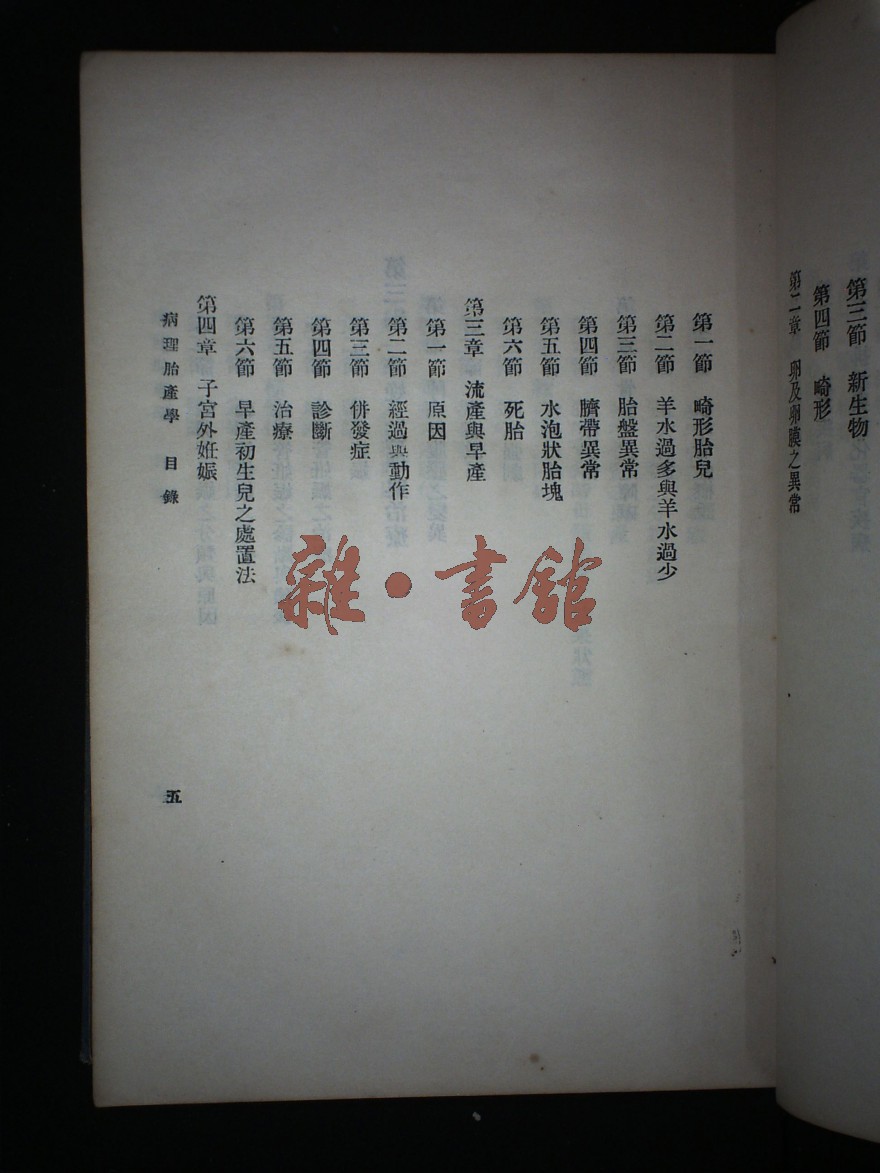 第三節　新生物
第四節　畸形
第二章　卵及卵膜之異常
第一節　畸形胎兒
第二節　羊水過多與羊水過少
第三節　胎盤異常
第四節　臍帶異常
第五節　水泡狀胎塊
第六節　死胎
第三章　流產與早產
第一節　原因
第二節　經過與動作
第三節　併發症
第四節　診斷
第五節　治療
第六節　早產初生兒之處置法
第四章　子宮外妊娠
病理胎產學　目錄
五
雜·書館